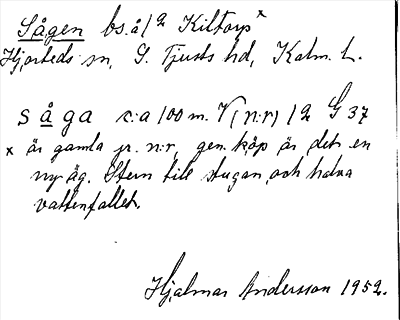 Sågen bs. å 1/2 Kiltorp x
Hjorteds sn, S. Tjusts hd, Kalm. L.
såga c:a 100 m. V (n:r) 1/2 G 37
x är gamla jr. n:r, gen. köp är det en
ny äg. Stem till stugan, och halva
vattenfallet.
Hjalmar Andersson 1952.